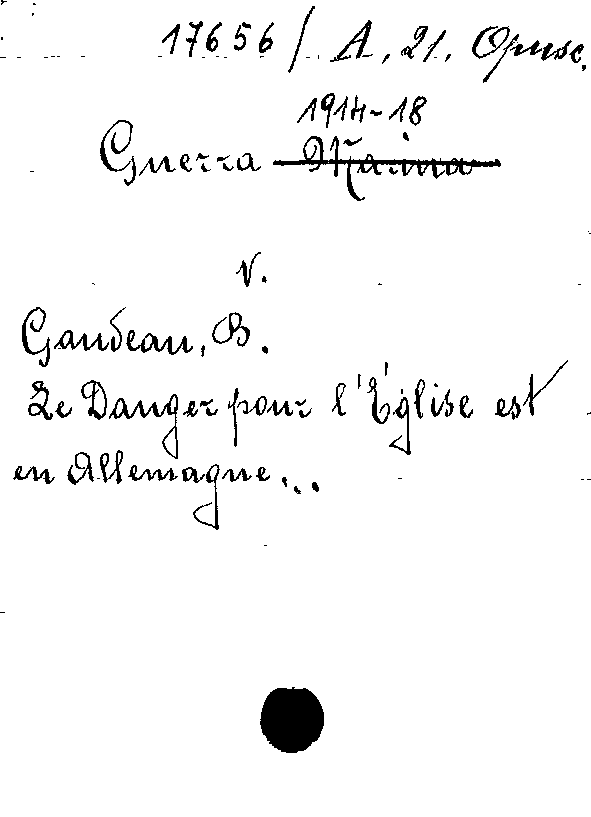 17656 / A, 21. Opusc.
1914-18
Guerra Marina
V.
Gaudeau, B.
Le Danger pour l'Église est
en Allemagne...